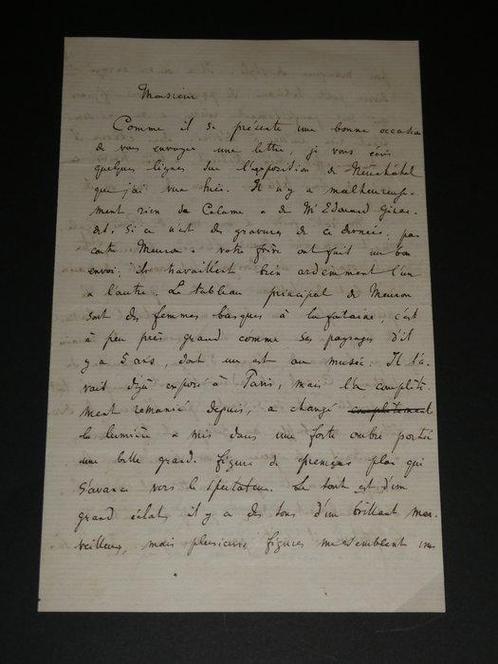 Monsieur
Comme il se présente une bonne occasion
de vous envoyer une lettre je vous écris
quelques lignes sur l'exposition de Neuchâtel
que j'ai vue hier. Il n'y a malheureuse-
ment rien de Calame & de Mr Edouard Girar-
det; si ce n'est des gravures de ce dernier, par
contre Meuron & votre frère ont fait un bon
envoi; ils travaillent bien ardemment l'un
& l'autre. Le tableau principal de Meuron
sont des femmes basques à la fontaine, c'est
à peu près grand comme ses paysages d'il
y a 5 ans, dont un est au musée. Il l'a-
vait déjà exposé à Paris, mais l'a complète-
ment remanié depuis, a changé complètement
la lumière & mis dans une forte ombre portée
une belle grand. figure de premier plan qui
s'avance vers le spectateur. Le tout est d'un
grand éclat, il y a des tons d'un brillant mer-
veilleux, mais plusieurs figures me semblent